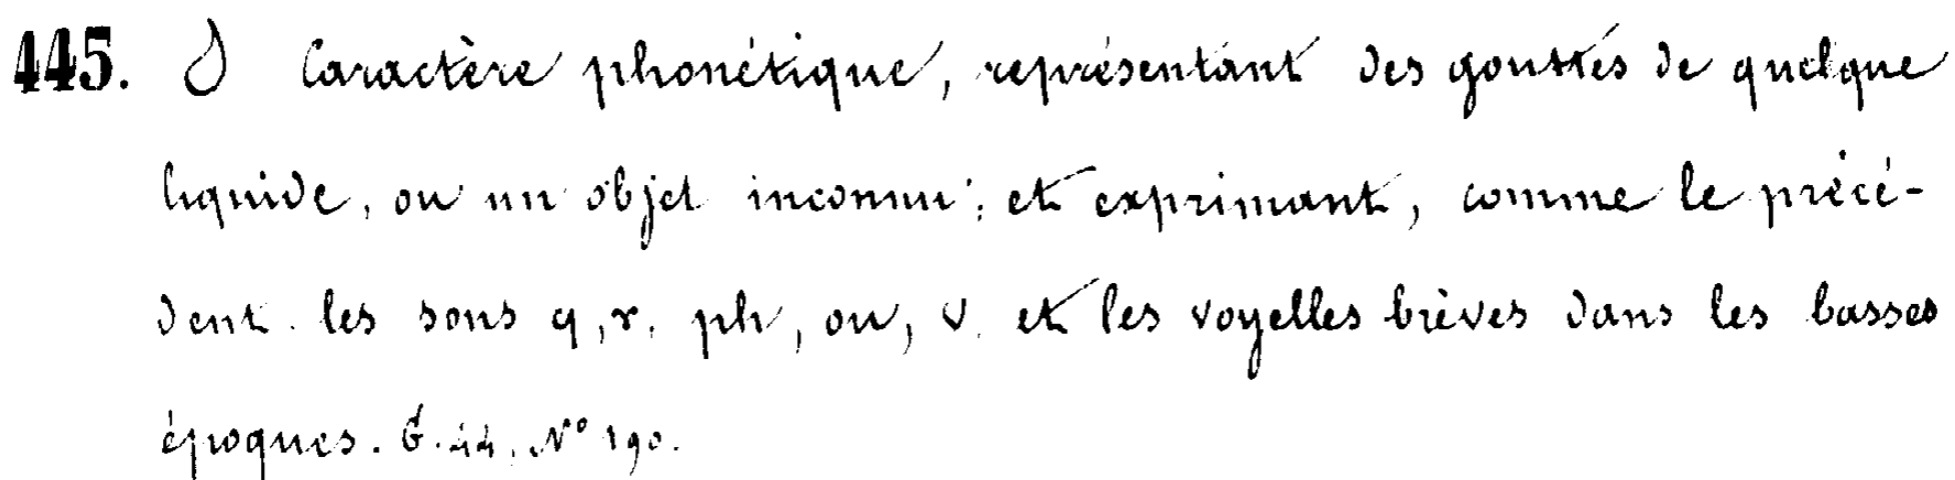 445. Caractère phonétique, représentant des gouttes de quelque
liquide, ou un objet inconnu; et exprimant, comme le précé-
dent les sons q, r, ph, ou, v, et les voyelles brèves dans les basses
époques. G. 44, N° 190.